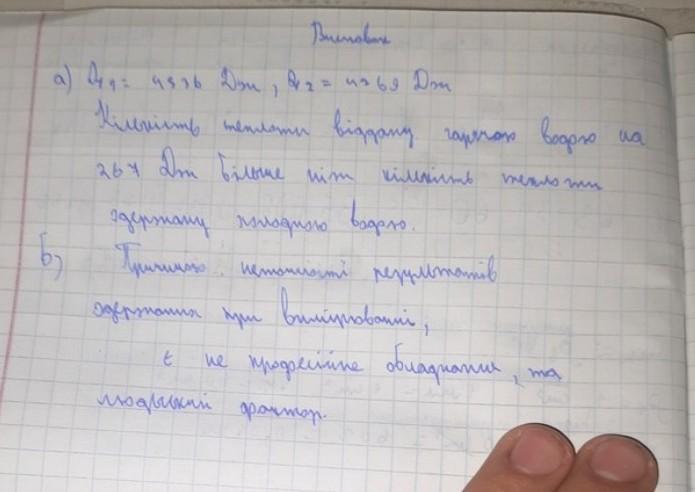 Висновок
а) Q₁ = 4536 Дж, Q₂ = 4269 Дж
Кількість теплоти віддану гарячою водою на
267 Дж більше ніж кількість теплоти
одержану холодною водою.
б) Причиною неточності результатів
одержання при вимірюванні,
є не професійне обладнання, та
людський фактор.